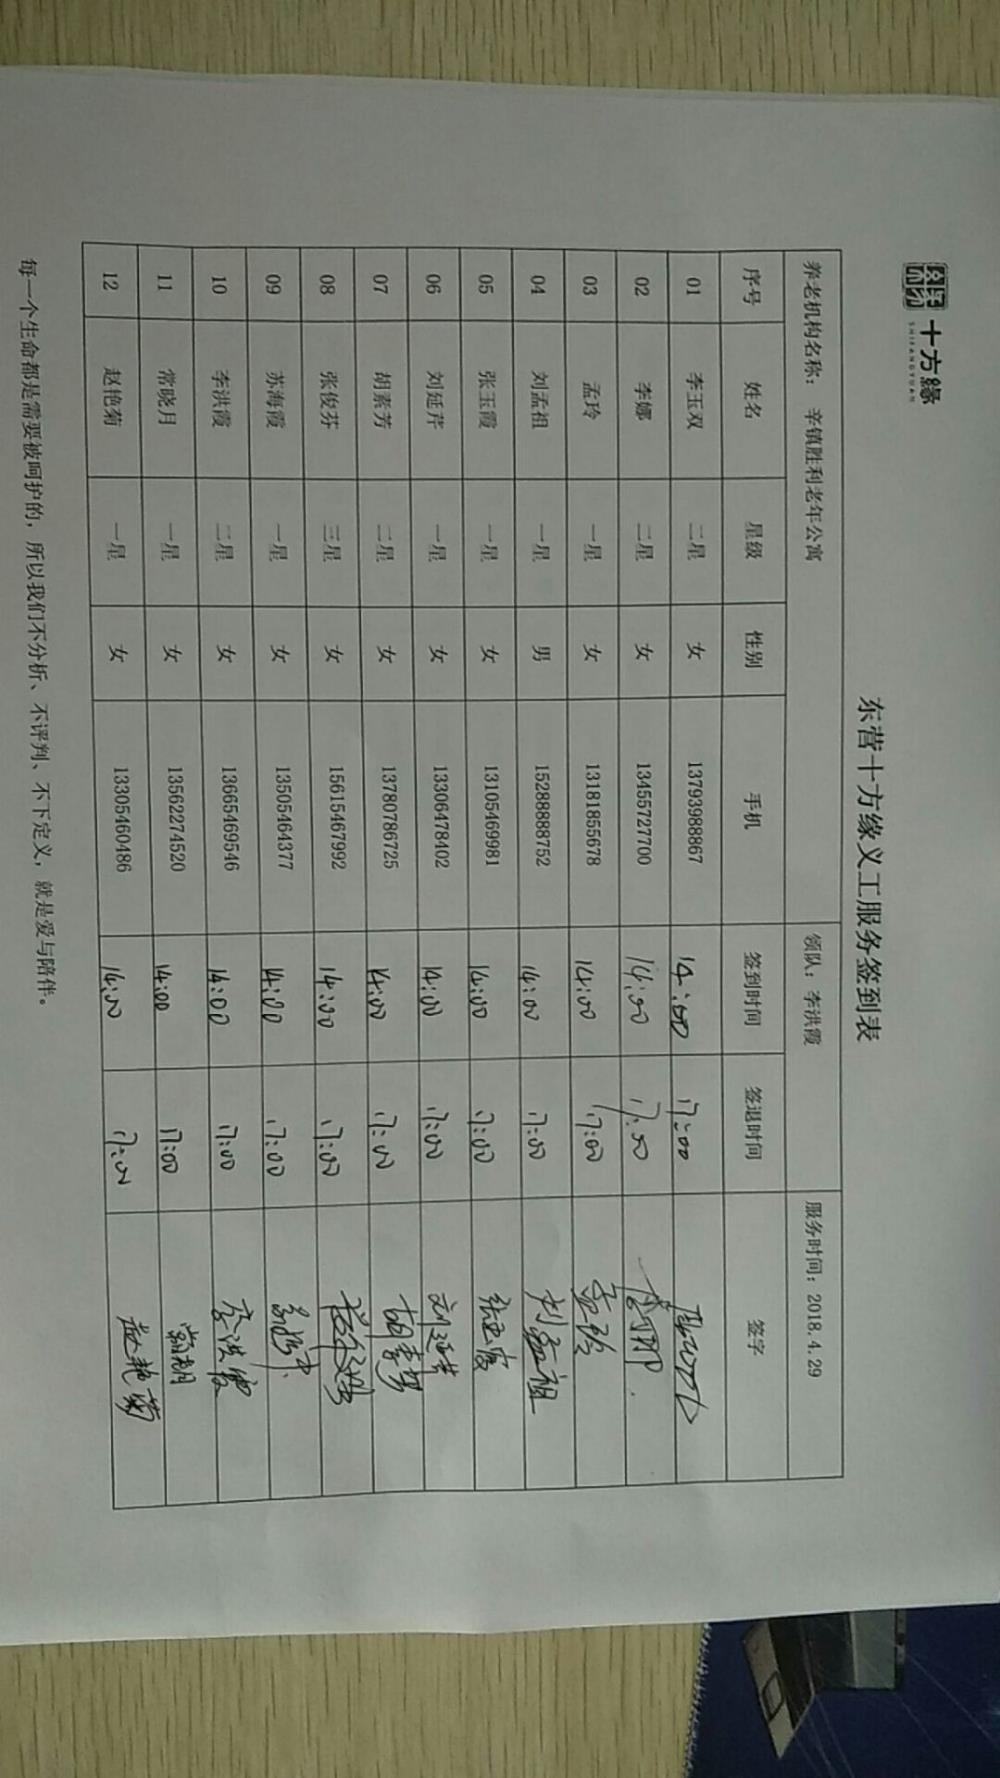 十方缘
SHIFANGYUAN
东营十方缘义工服务签到表
养老机构名称： 辛镇胜利老年公寓 领队：李洪霞 服务时间：2018.4.29
序号 姓名 星级 性别 手机 签到时间 签退时间 签字
01 李玉双 二星 女 13793988867 14:00 17:00
02 李娜 二星 女 13455727700 14:00 17:00
03 孟玲 一星 女 13181855678 14:00 17:00 孟玲
04 刘孟祖 一星 男 15288888752 14:00 17:00 刘孟祖
05 张玉霞 一星 女 13105469981 14:00 17:00 张玉霞
06 刘延芹 一星 女 13306478402 14:00 17:00 刘延芹
07 胡素芳 二星 女 13780786725 14:00 17:00 胡素芳
08 张俊芬 三星 女 15615467992 14:00 17:00
09 苏海霞 一星 女 13505464377 14:00 17:00
10 李洪霞 二星 女 13665469546 14:00 17:00 李洪霞
11 常晓月 一星 女 13562274520 14:00 17:00
12 赵艳菊 一星 女 13305460486 14:00 17:00 赵艳菊
每一个生命都是需要被呵护的，所以我们不分析、不评判、不下定义，就是爱与陪伴。